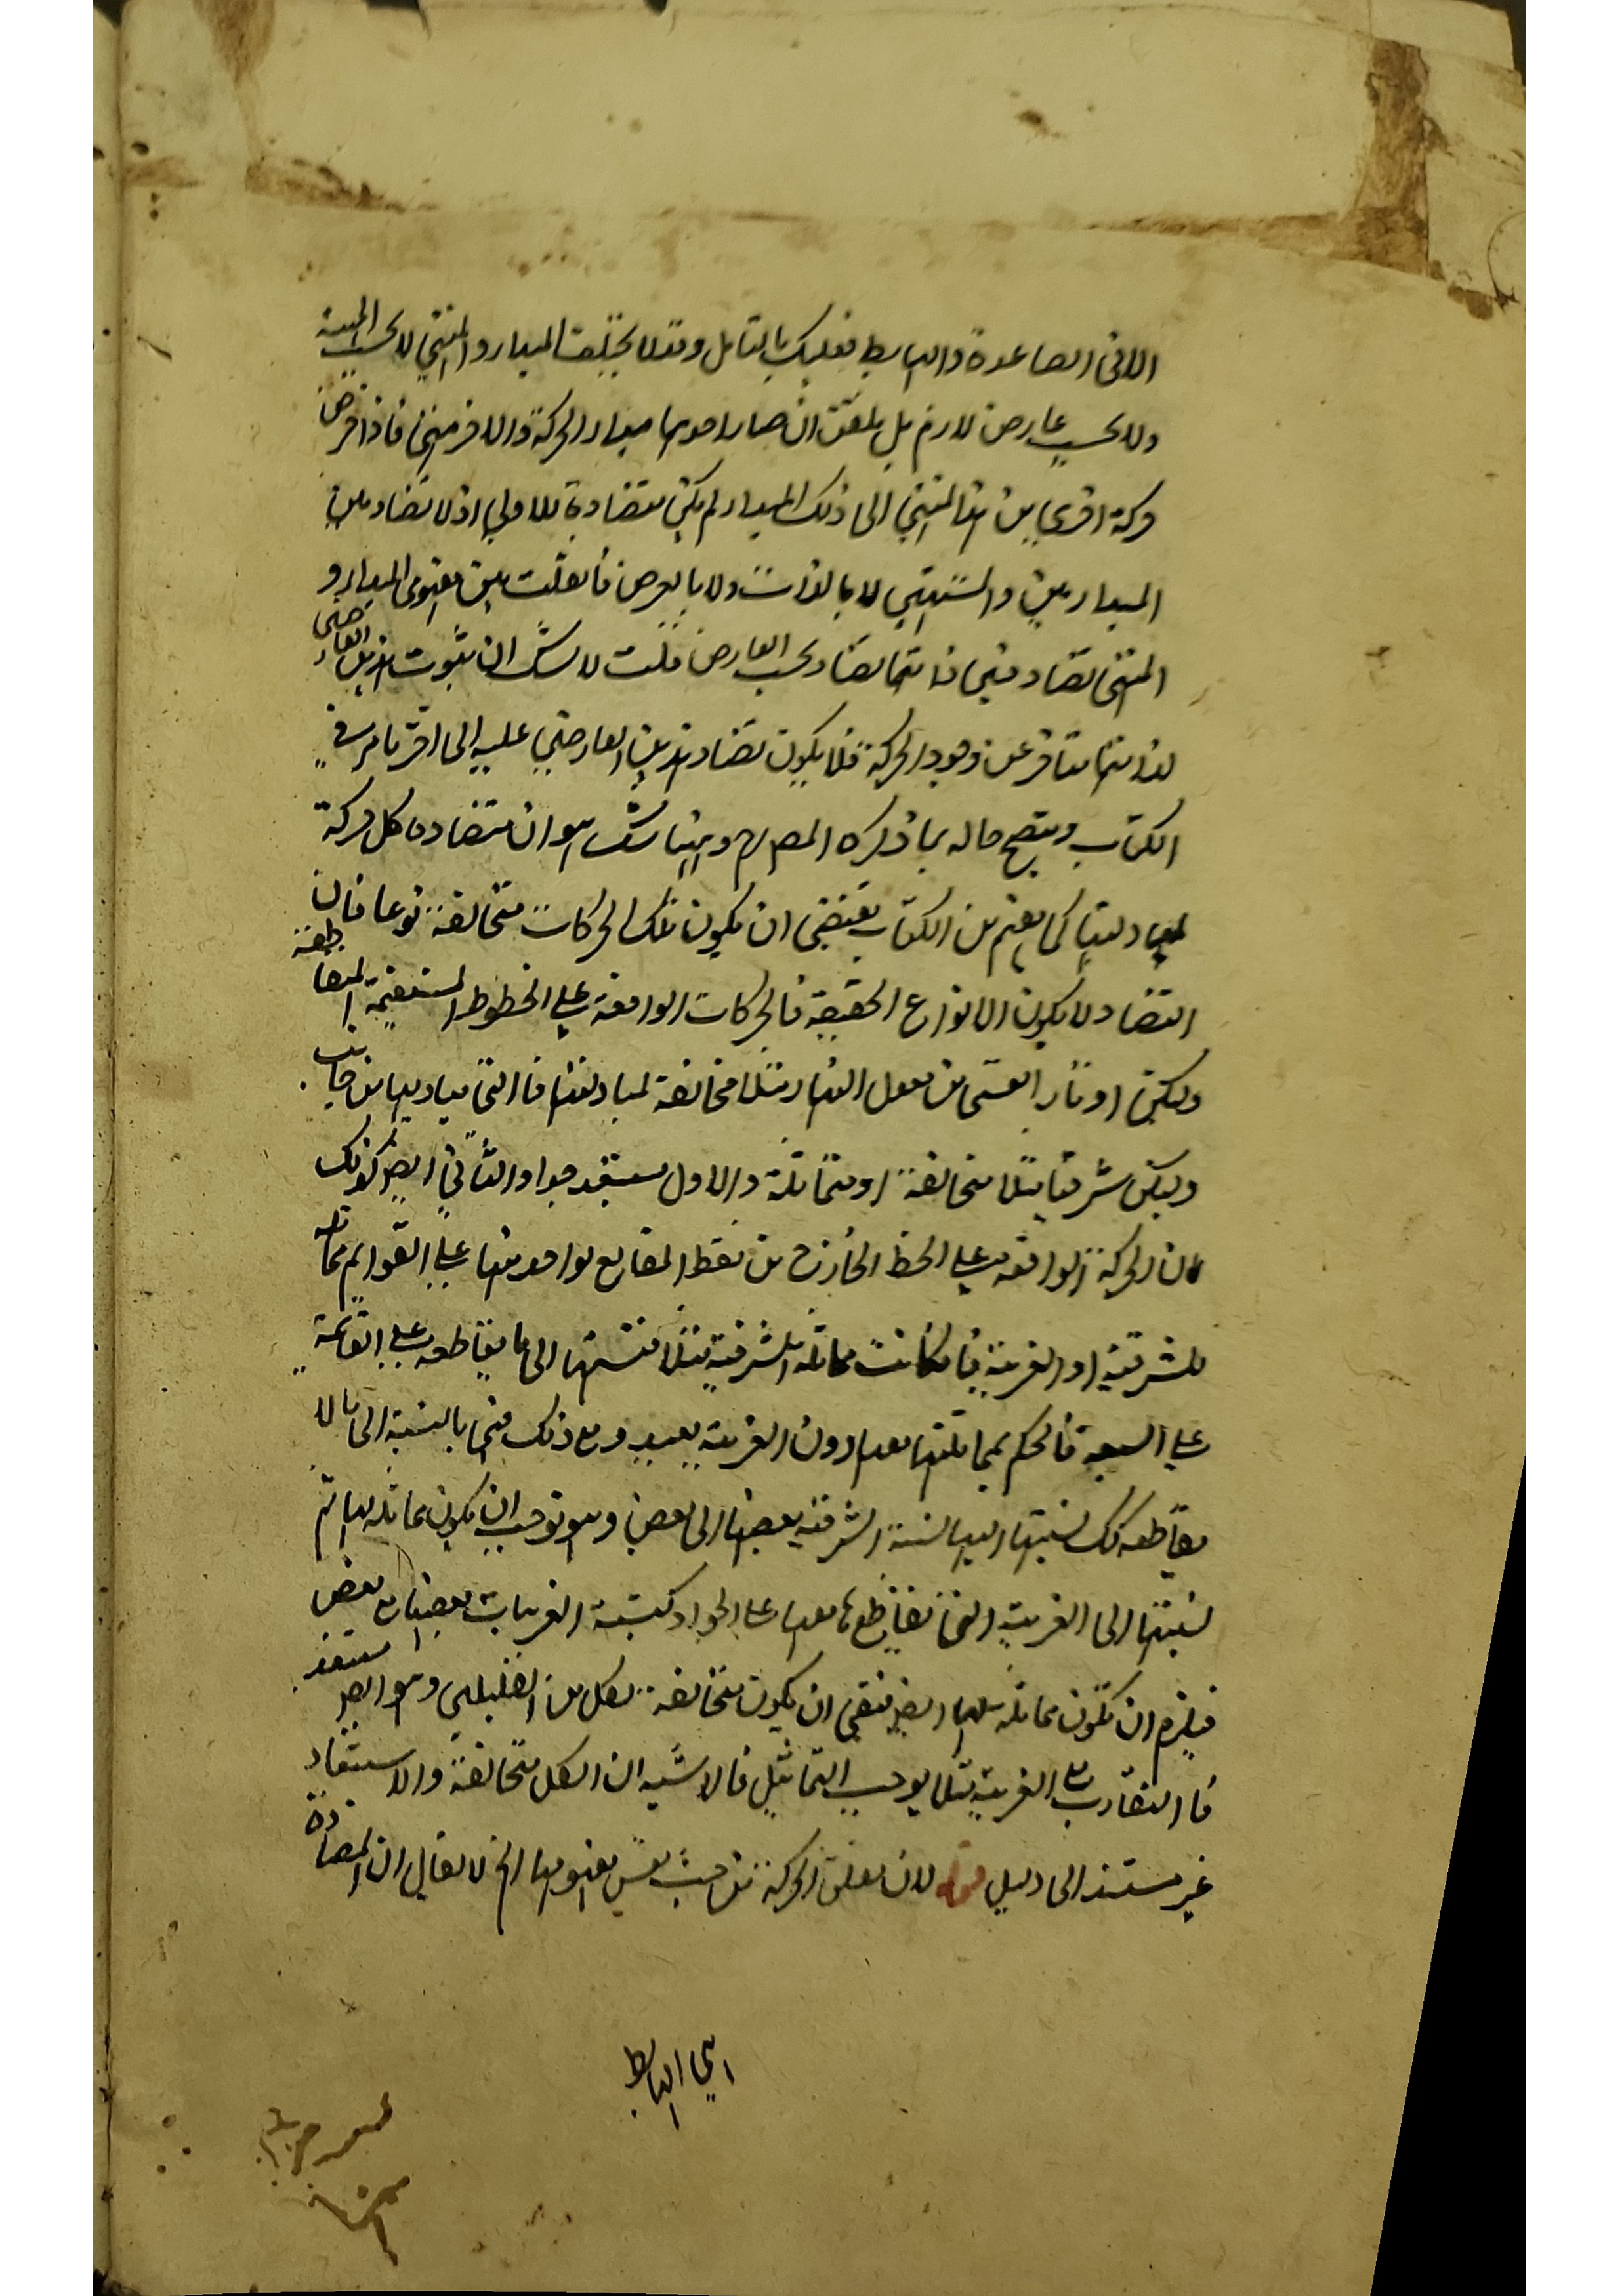 الا فى الصاعدة والهابط فعليك بالتامل وقد لا يختلف المبدا والمنتهى لا بحسب المهية
ولا بحسب عارض لازم بل يتفق ان صار احدهما مبدا الحركة والاخر منتهى فاذا فرض
حركة اخرى من هذا المنتهى الى ذلك المبدا لم يكن متضادة للاولى اذ لا تضاد بين
المبدا بين والمنتهيين لا بالذات ولا بالعرض فان قلت بين مفهومى المبدا و
المنتهى تضاد فبين ذاتيهما تضاد بحسب العارض قلت لا شك ان ثبوت هذين العارضين
لذاتيهما متاخر عن وجود الحركة فلا يكون تضاد هذين العارضين عليه الى اخر ما مر فى
الكتاب ويتضح حاله بما ذكره المص رح وههنا شك هو ان متضاده كل حركة
لمبادلتها كما يفهم من الكتاب يقتضى ان يكون تلك الحركات متخالفة نوعا فان
التضاد لا يكون الا لانواع الحقيقة فالحركات الواقعة على الخطوط المستقيمة المتقاطعة
وليكن اوتار القسى من معدل النهار مثلا مخالفة لمبادلتها فالتى مباديها من جانب
وليكن شرقيا مثلا متخالفة او متماثلة والاول مستبعد جدا والثانى ايضا كذلك
لان الحركة الواقعه على الخط الخارج من نقط التقاطع لواحد منها على القوايم مماثله
للشرقية او الغربية فان كانت مماثلة للشرقية مثلا فنسبتها الى ما يقاطعه على القائمة
على السويه فالحكم بمماثلتها معها دون الغربية بعيد ومع ذلك فهى بالنسبة الى ما لا
يقاطعه كك نسبتها اليها كنسبة الشرقيه بعضها الى بعض وهو توجب ان يكون مماثله لها ثم
نسبتها الى الغربية التى تقاطع معها على الحواد كنسبة الغربيات بعضها مع بعض
فيلزم ان تكون مماثله لها ايضا فبقى ان يكون متخالفة لكل من القبيلين وهو ايضا مستبعد
فان التقارب مع الغربية مثلا يوجب التماثل فالاشبه ان الكل متخالفة والاستبعاد
غير مستند الى دليل قوله لان تعلق الحركة من حيث نفس مفهومها الخ لا يقال ان المضادة
اى الهابط